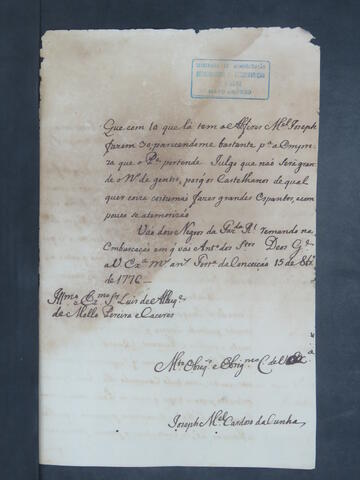 SECRETARIA DE ADMINISTRAÇÃO
Que com 10 que lá tem o Alferes Mel Joseph
fazem 30, parecendome bastante pa a Empre-
za que o Pe pertende Julgo que não Será gran-
de o No de gentio, porq os Castelhanos de qual
quer coiza costumão fazer grandes Espantos, e com
pouco se atemorizão
Vão dois Negros da Fazda Rl remando na
Embarcação em q vai Anto dos Stos Deos Ge
a V Exa ms ans Forte da Conceição 15 de 8bro
de 1776
Illmo e Exmo Sr Luis de Albuqe
de Mello Pereira e Caceres
Mto Obrigo e Obrigmo C de V Exa
Joseph Mel Cardozo da Cunha